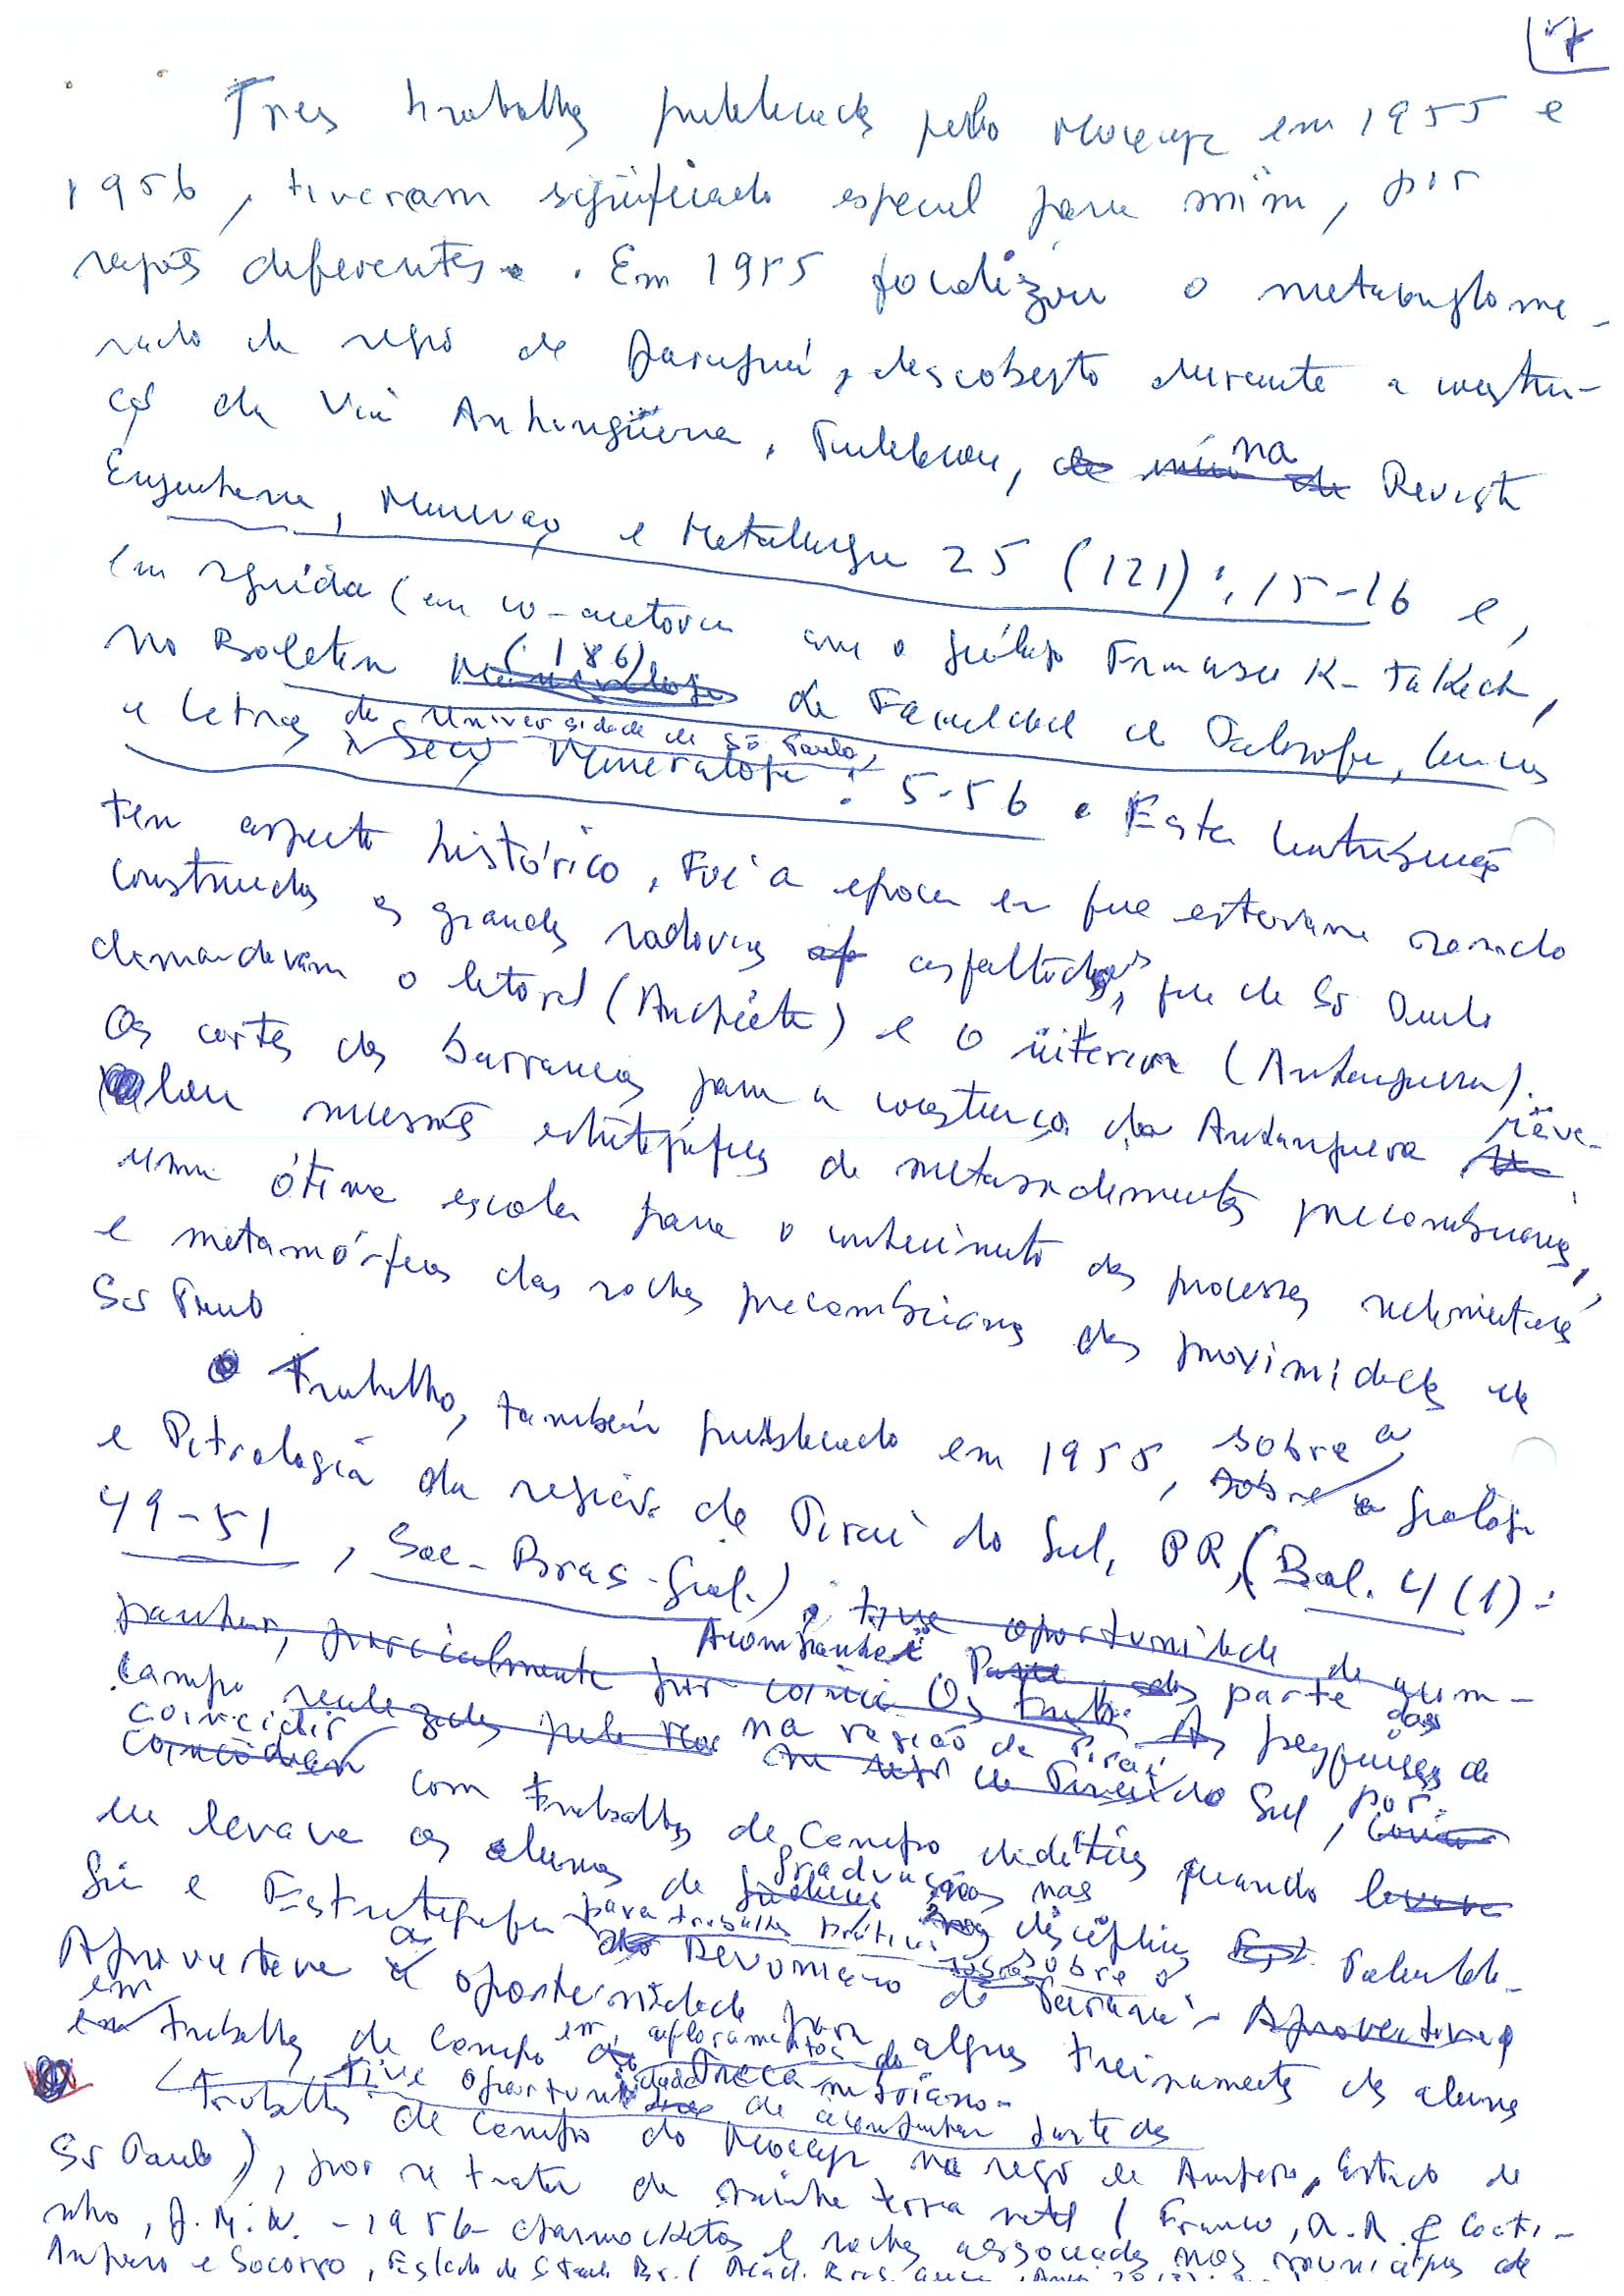 7
Tres trabalhos publicados pelo Moacyr em 1955 e
1956, tiveram significado especial para mim, por
razões diferentes. Em 1955 focalizou o metaconglome-
rado da região de Jaraguá, descoberto durante a constru-
ção da Via Anhangüera, Publicou, na Revista
Engenharia, Mineração e Metalurgia 25 (121): 15-16 e,
em seguida (em co-autoria com o geólogo K. Takeda,
no Boletim (186) da Faculdade de Filosofia, Ciências
e Letras da Universidade de São Paulo,
Seção Mineralogia: 5-56. Esta contribuição
tem aspecto histórico. Foi a epoca em que estavam sendo
construidas as grandes rodovias asfaltadas, que de São Paulo
demandavam o litoral (Anchieta) e o interior (Anhanguera).
Os cortes dos barrancos para a construção da Anhanguera reve-
lou estratigráficas de metassedimentos precambrianos,
uma ótima escola para o conhecimento dos processos sedimentares
e metamórficos das rochas precambrianas das proximidades de
São Paulo
Trabalho, também publicado em 1955, sobre a Geologia
e Petrologia da região de Pirai do Sul, PR, (Bol. 4 (1):
49-51, Soc. Bras. Geol.). tive oportunidade de acom-
panhar, parcialmente por
Acompanhei parte das pesquisas de
campo na região de Pirai do Sul, por
coincidir com trabalhos de Campo didáticos quando
eu levava os alunos de graduação nas disciplinas Paleontolo-
gia e Estratigrafia para trabalhos práticos sobre o
Devoniano do Paraná. Aproveitava
a oportunidade para alguns treinamentos dos alunos
em trabalhos de campo em afloramentos do
Precambriano.
Tive oportunidade de acompanhar parte dos
trabalhos de campo do Moacyr na região de Amparo, Estado de
São Paulo), por se tratar de minha terra natal (Franco, R. R. & Couti-
nho, J. M. V. - 1956 - charnockitos e rochas associadas nos municípios de
Amparo e Socorro, Estado de S. Paulo